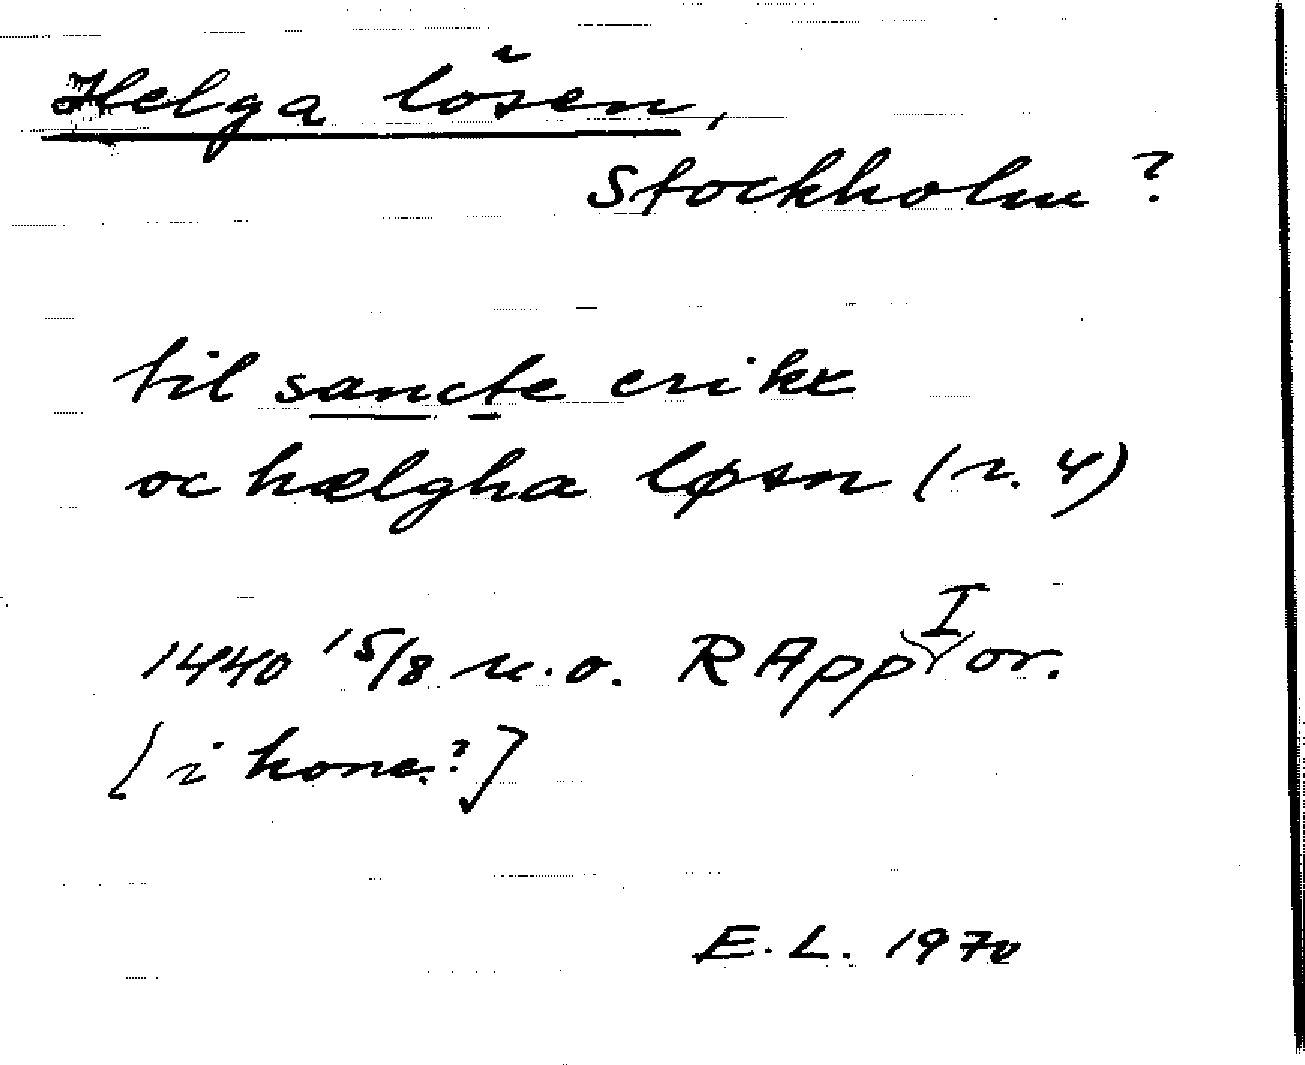 Helga lösen,
Stockholm ?
til sancte erikx
oc hælgha løsn (r. 4)
1440 15/8 u.o. RAppI or.
[i konc.?]
E. L. 1970